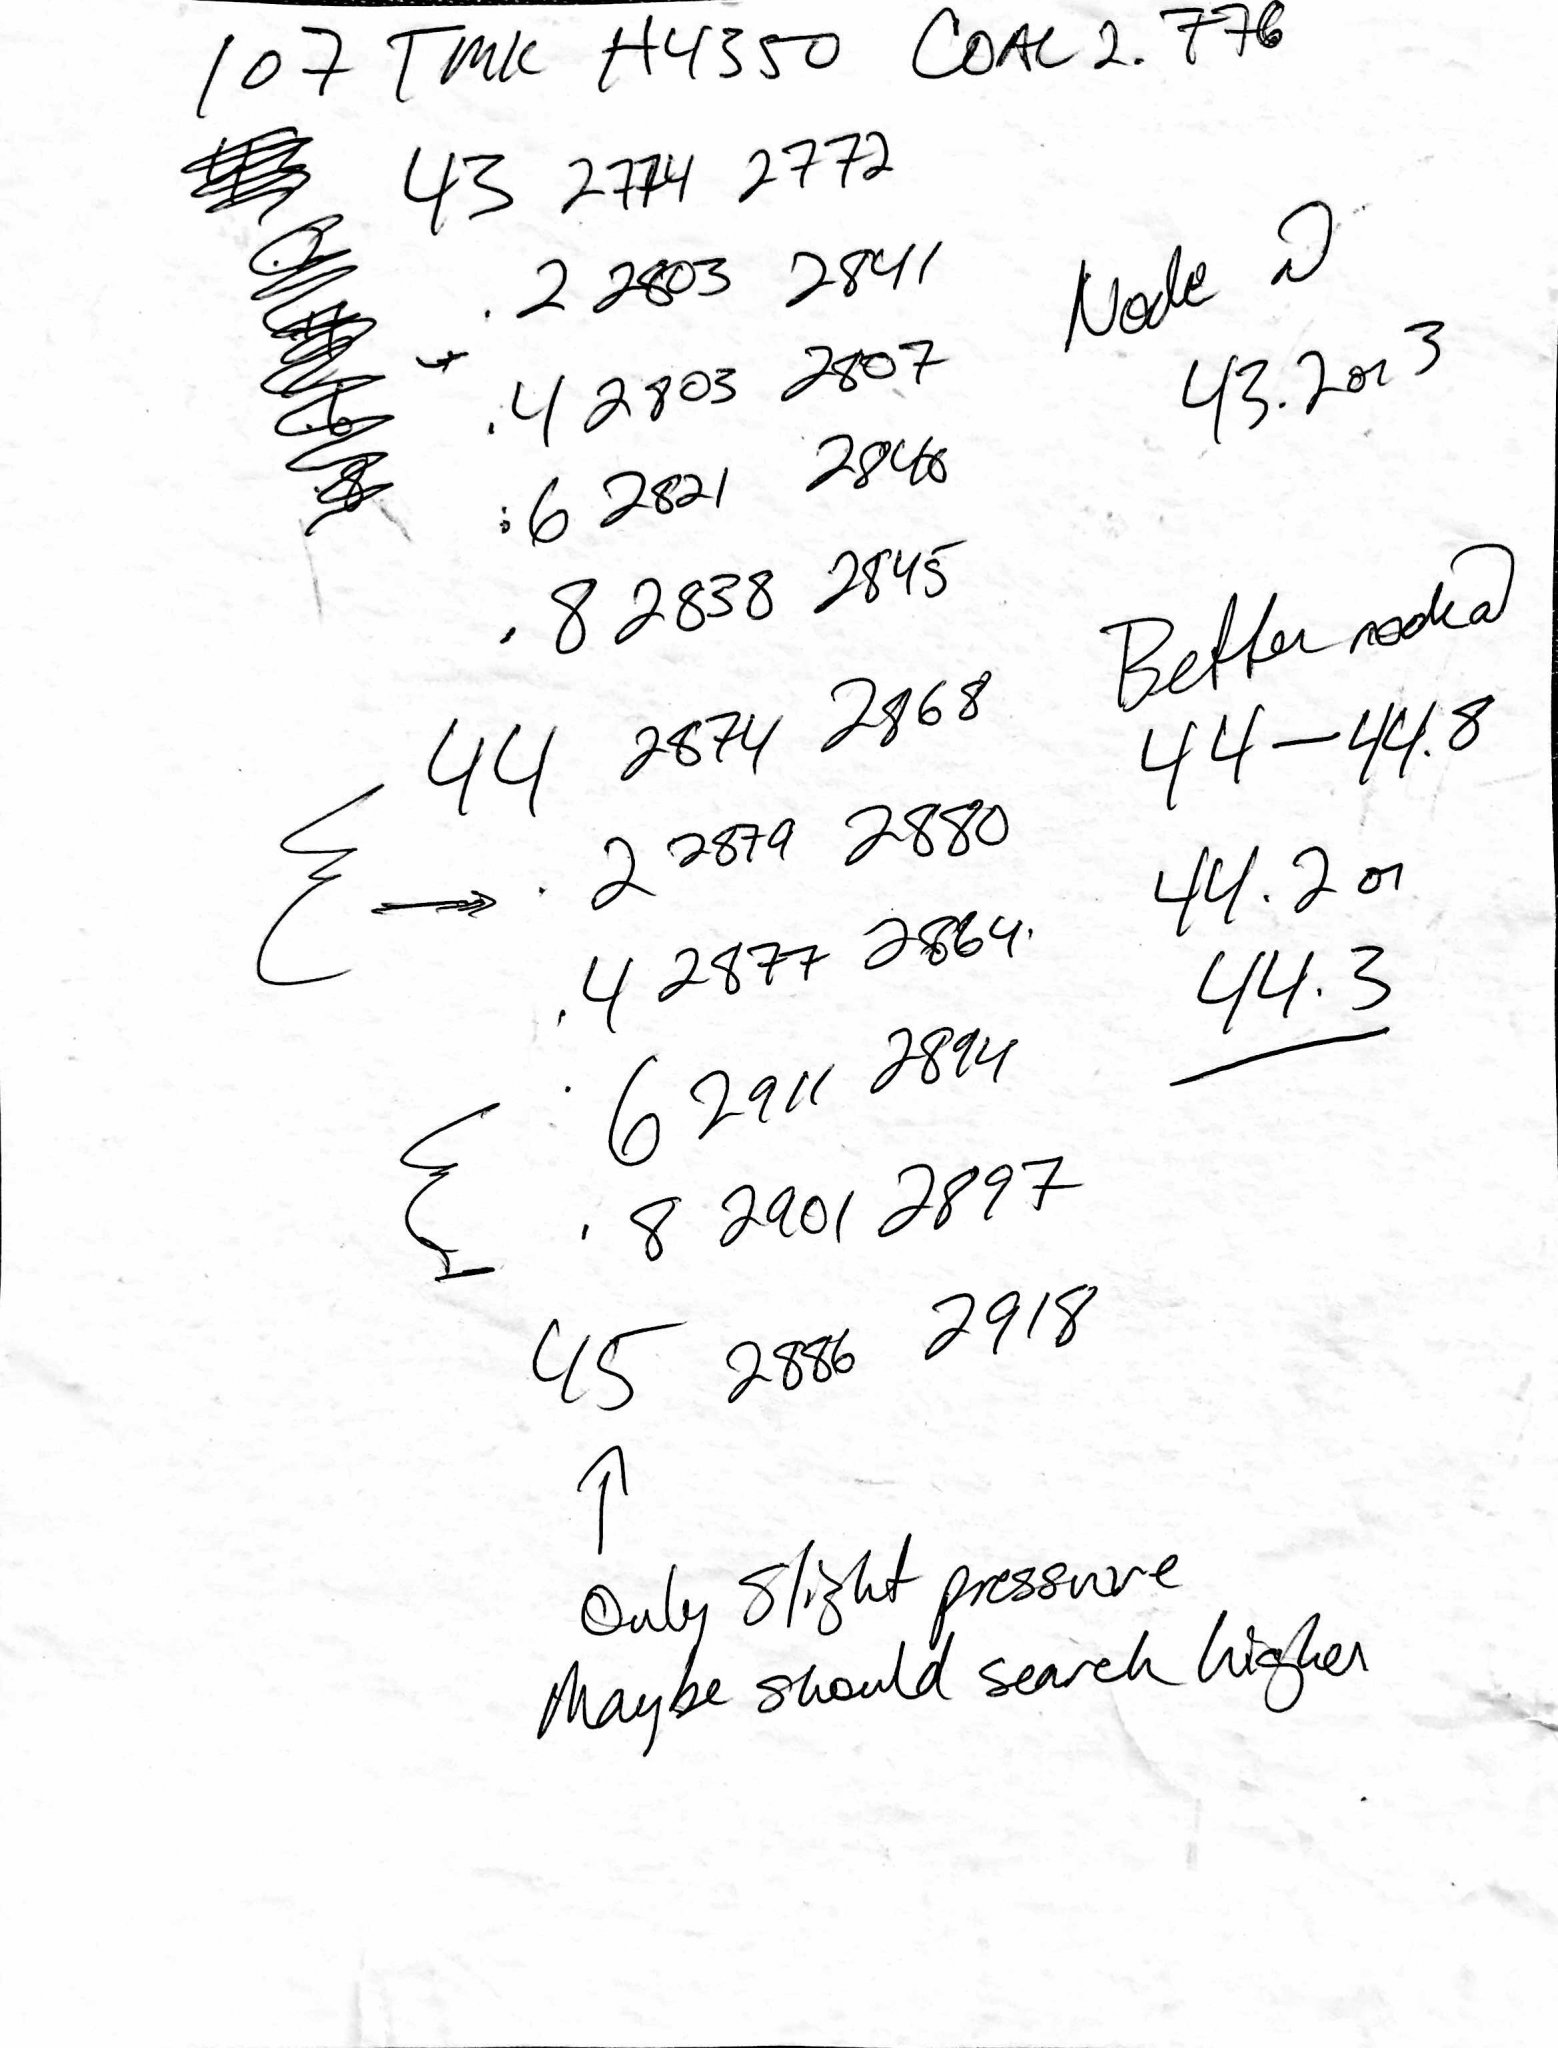 107 TMK H4350 COAL 2.776
43 2774 2772
.2 2803 2841
.4 2803 2807
.6 2821 2846
.8 2838 2845
44 2874 2868
.2 2879 2880
.4 2877 2864.
.6 2911 2894
.8 2901 2897
45 2886 2918
↑
Only slight pressure
Maybe should search higher
Node
43.2 or 3
Better node
44—44.8
44.2 or
44.3